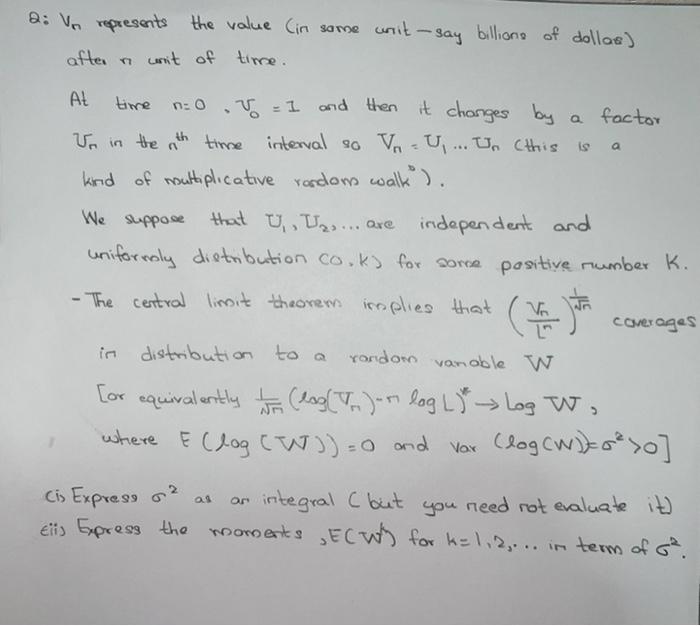 Q: Vn represents the value (in some unit - say billions of dollas)
after n unit of time.
At time n=0, V0 = 1 and then it changes by a factor
Un in the nth time interval so Vn = U1 ... Un (this is a
kind of multiplicative random walk").
We suppose that U1, U2, ... are independent and
uniformly distribution (0,k) for some positive number K.
- The central limit theorem implies that (Vn/L^n)^(1/√n) coverages
in distribution to a random variable W
[or equivalently 1/√n (log(Vn)-n log L)* → log W,
where E (log (W)) = 0 and var (log(W))=σ² >0]
(i) Express σ² as an integral (but you need not evaluate it)
(ii) Express the moments, E(W^k) for k=1,2,... in term of σ².